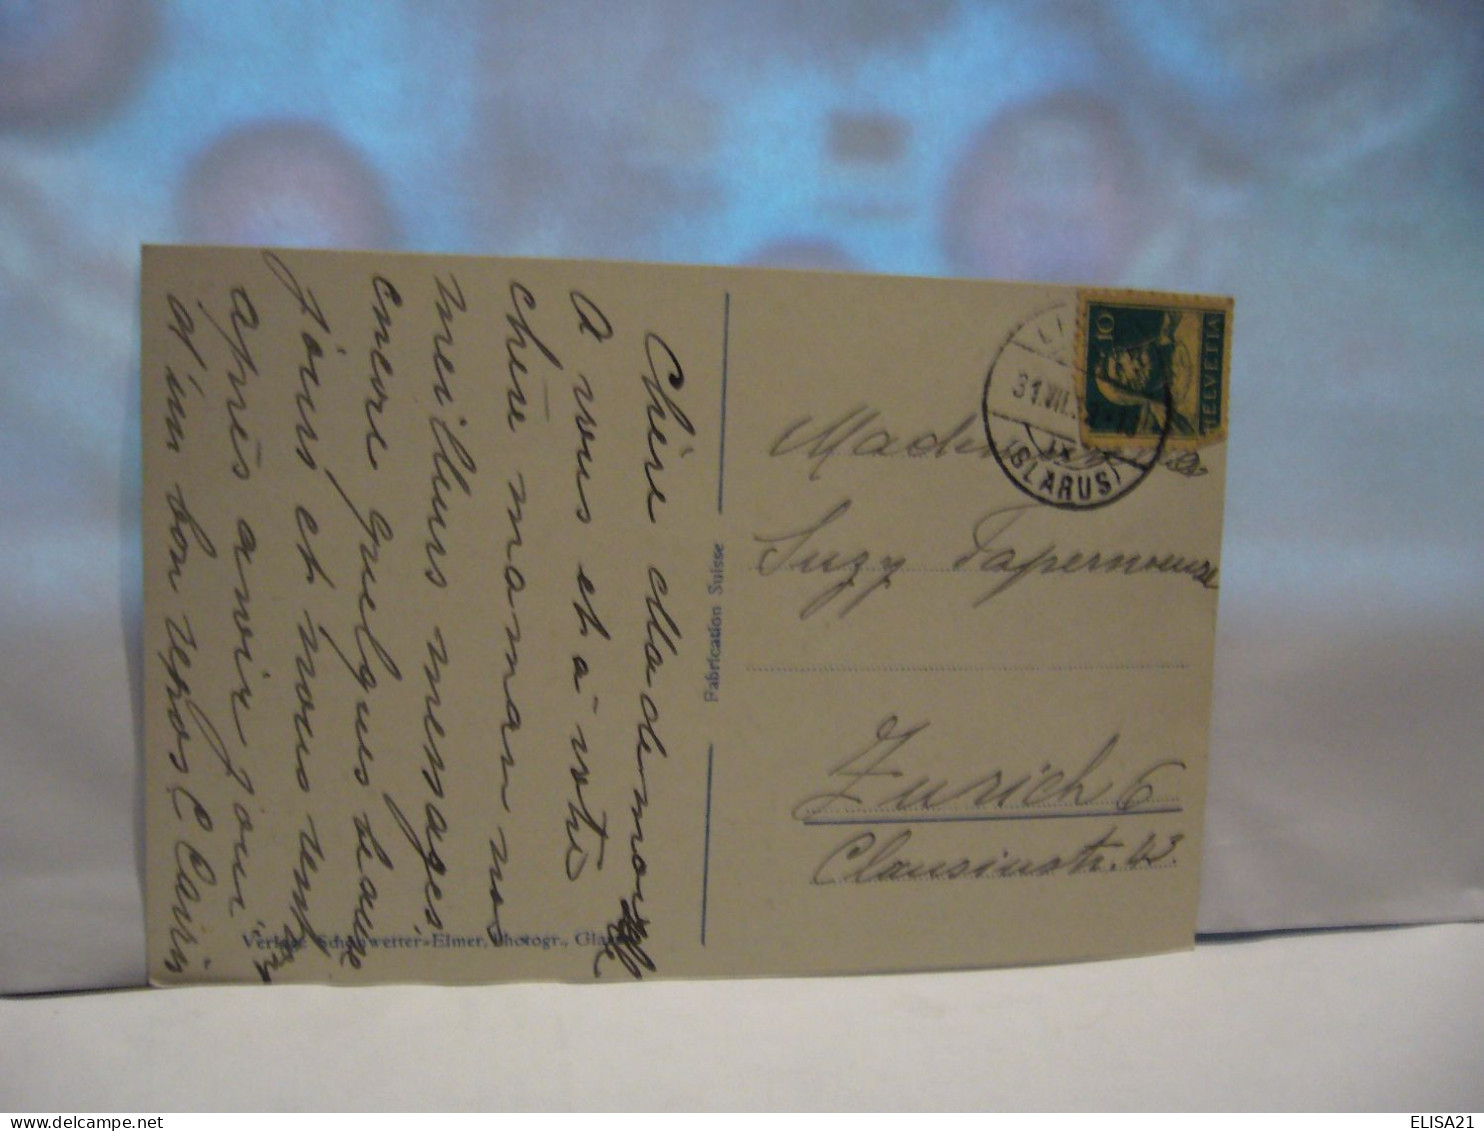 Chère Mademoiselle
A vous et à votre
chère maman nos
meilleurs messages
encore quelques beaux
jours et nous
après avoir joui
d'un bon repos
Verlag: Schönwetter-Elmer, Photogr., Glarus
Fabrication Suisse
10
HELVETIA
31.VII.
(GLARUS)
Suzy
Zurich 6
Clausiusstr. 43.
ELISA21